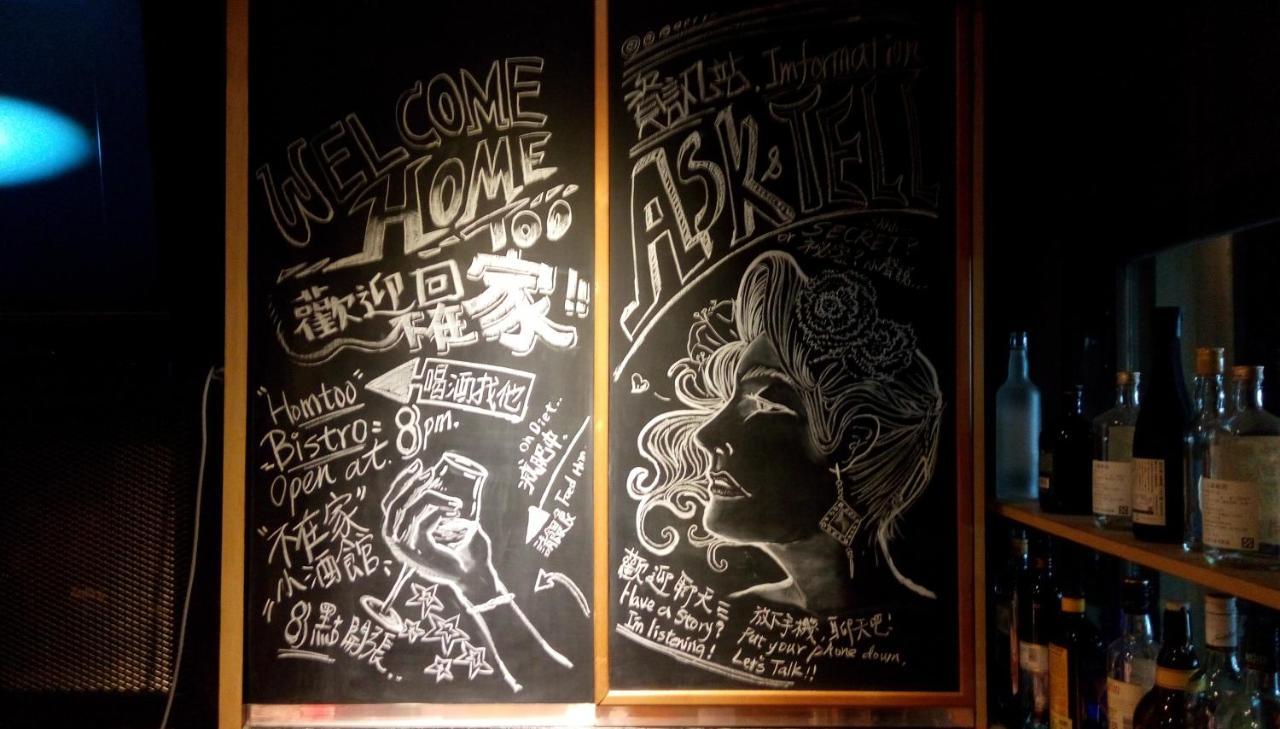 WELCOME
HOME
TOO
歡迎回家!!
不在
喝酒找他
"Homtoo"
Bistro
Open at. 8pm.
"不在家"
小酒館、
8點開張..
on Diet..
減肥中.
請餵食 Feed Him
資訊站. Imformation
ASK & TELL
or SECRET?
秘密?小聲說...
歡迎聊天
Have a story?
I'm listening!
放下手機,聊天吧!
Put your phone down.
Let's Talk!!